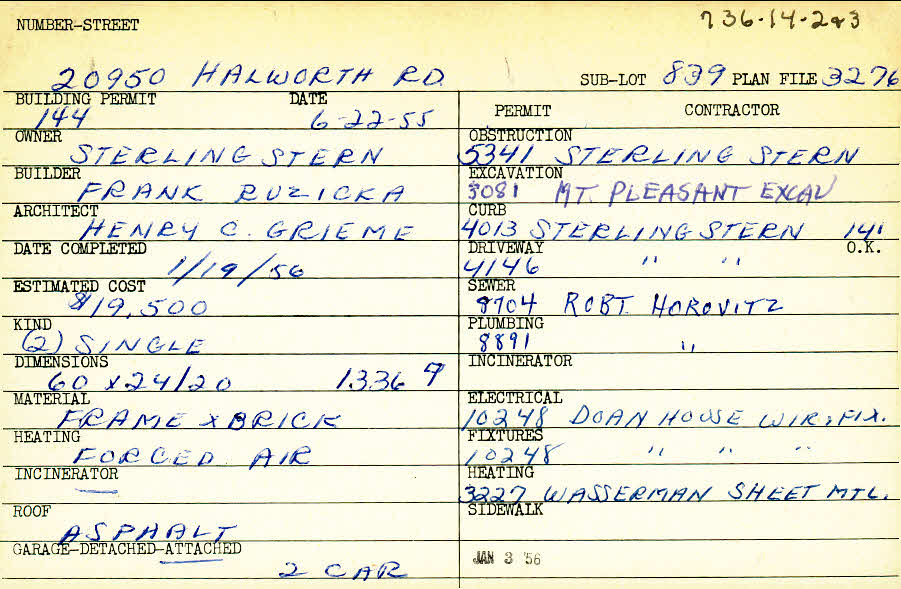 736-14-2&3
NUMBER-STREET
20950 HALWORTH RD. SUB-LOT 839 PLAN FILE 3276
BUILDING PERMIT DATE
144 6-22-55
OWNER
STERLING STERN
BUILDER
FRANK RUZICKA
ARCHITECT
HENRY C. GRIEME
DATE COMPLETED
1/19/56
ESTIMATED COST
$19,500
KIND
(2) SINGLE
DIMENSIONS
60 x 24/20 1336
MATERIAL
FRAME x BRICK
HEATING
FORCED AIR
INCINERATOR
—
ROOF
ASPHALT
GARAGE-DETACHED-ATTACHED
2 CAR
PERMIT CONTRACTOR
OBSTRUCTION
5341 STERLING STERN
EXCAVATION
3081 MT. PLEASANT EXCAV
CURB
4013 STERLING STERN 14'
DRIVEWAY O.K.
4146 " "
SEWER
8704 ROBT. HOROVITZ
PLUMBING
8891 "
INCINERATOR
ELECTRICAL
10248 DOAN HOUSE WIR, FIX.
FIXTURES
10248 " " "
HEATING
3227 WASSERMAN SHEET MTL.
SIDEWALK
JAN 3 '56